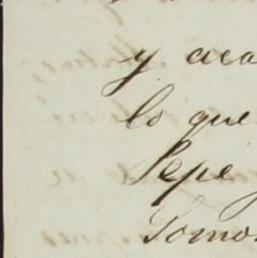 y aca
lo que
Pepe
Tomo